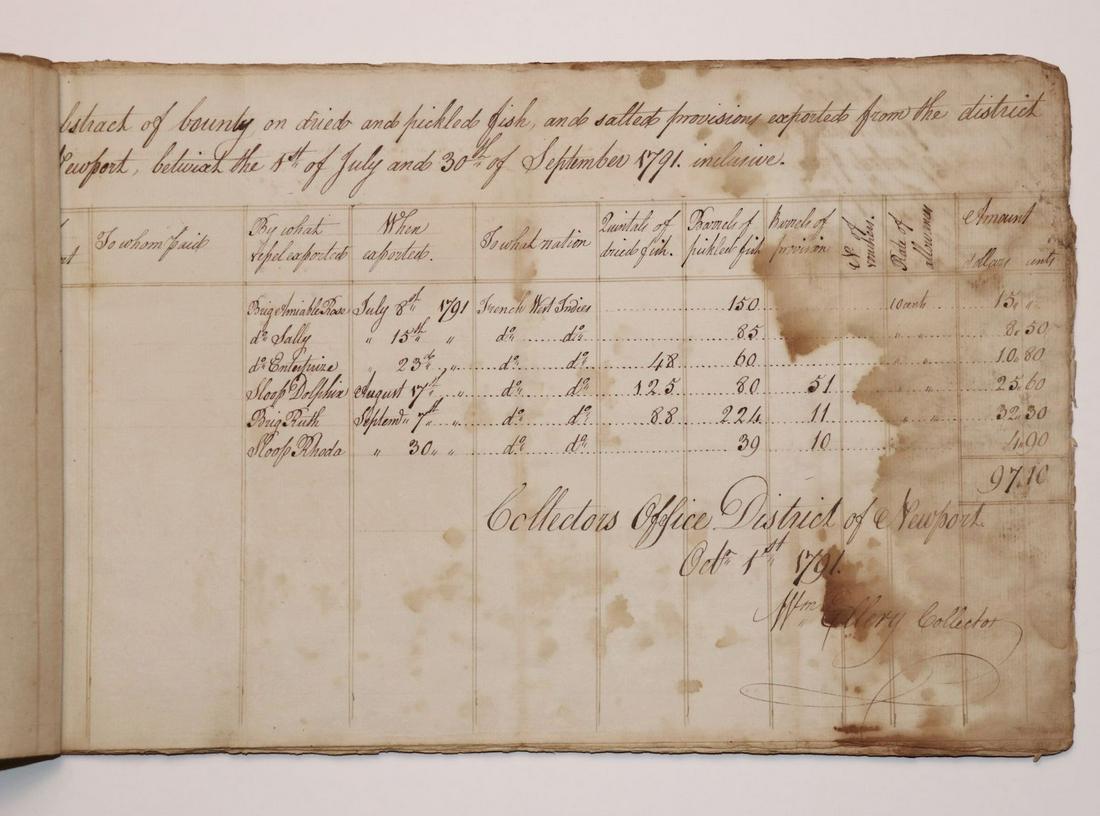 bstract of bounty on dried and pickled fish, and salted provisions exported from the district
Newport, betwixt the 1st of July and 30th of September 1791. inclusive.
To whom paid By what Vessel exported When exported. To what nation Quintals of dried fish. Barrels of pickled fish Barrels of provision No. of vouchers. Rate of allowances Amount dollars cents
Brig Amiable Rose July 8th 1791 French West Indies 150 10 cents 15 " "
do Sally " 15th " do do 85 " " 8.50
do Enterprize " 23d " do do 48 60 10.80
Sloop Dolphin August 17th " do do 125 80 51 " " 25.60
Brig Ruth Septemr 7th " do do 88 224 11 " " 32.30
Sloop Rhoda " 30 " " do do 39 10 4.90
97.10
Collectors Office District of Newport.
Octr 1st 1791.
Wm Ellery Collector